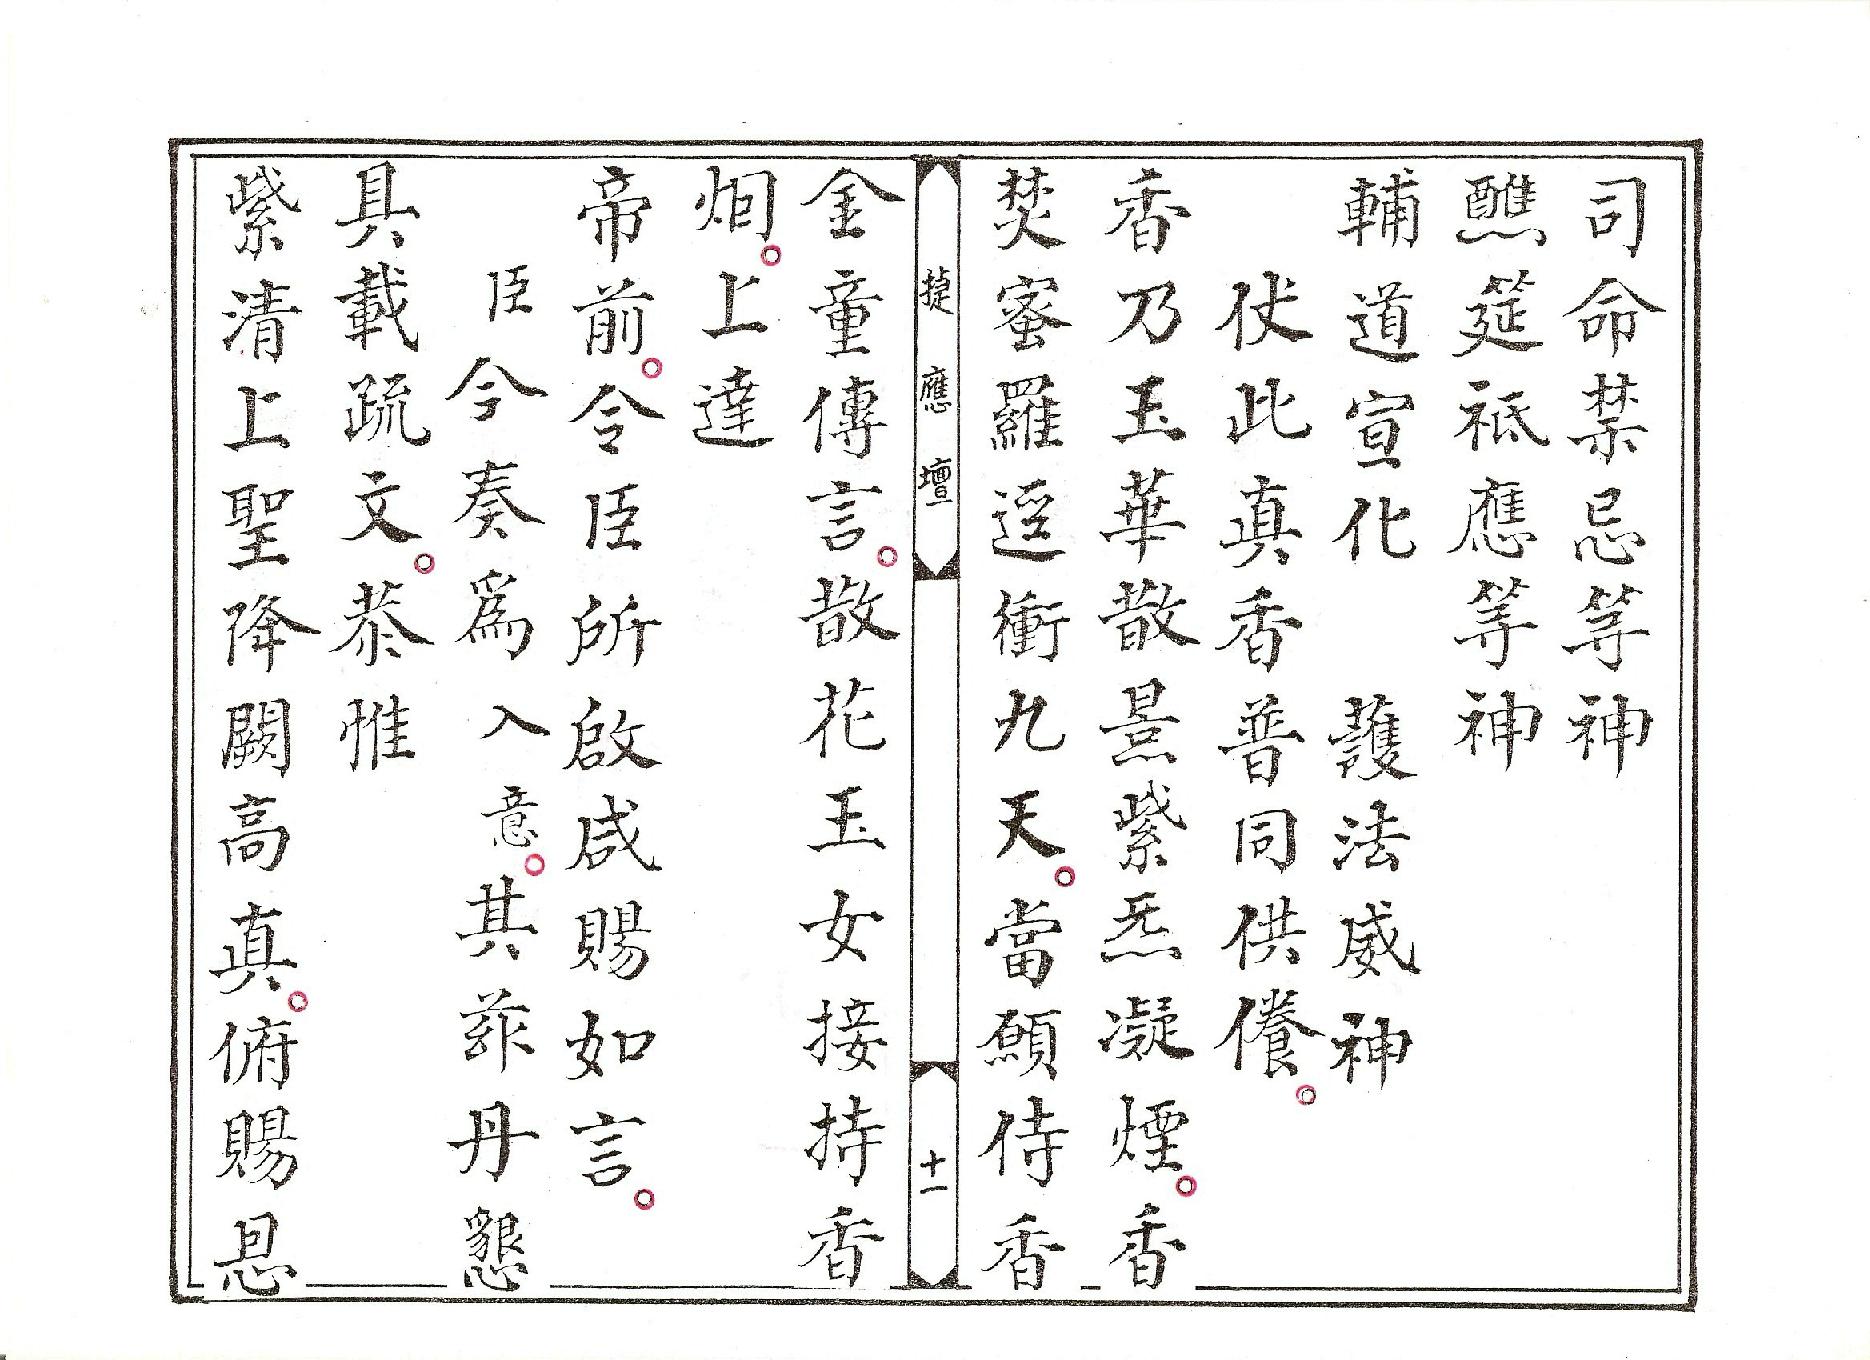 司命禁忌等神
醮筵祗應等神
輔道宣化 護法威神
伏此真香普同供養。
香乃玉華散景紫炁凝煙。香
焚蜜羅逕衝九天。當願侍香
捷應壇 十一
金童傳言。散花玉女接持香
烟。上達
帝前。令臣所啟咸賜如言。
臣今奏為入意。其茲丹懇
具載疏文。恭惟
紫清上聖降闕高真。俯賜